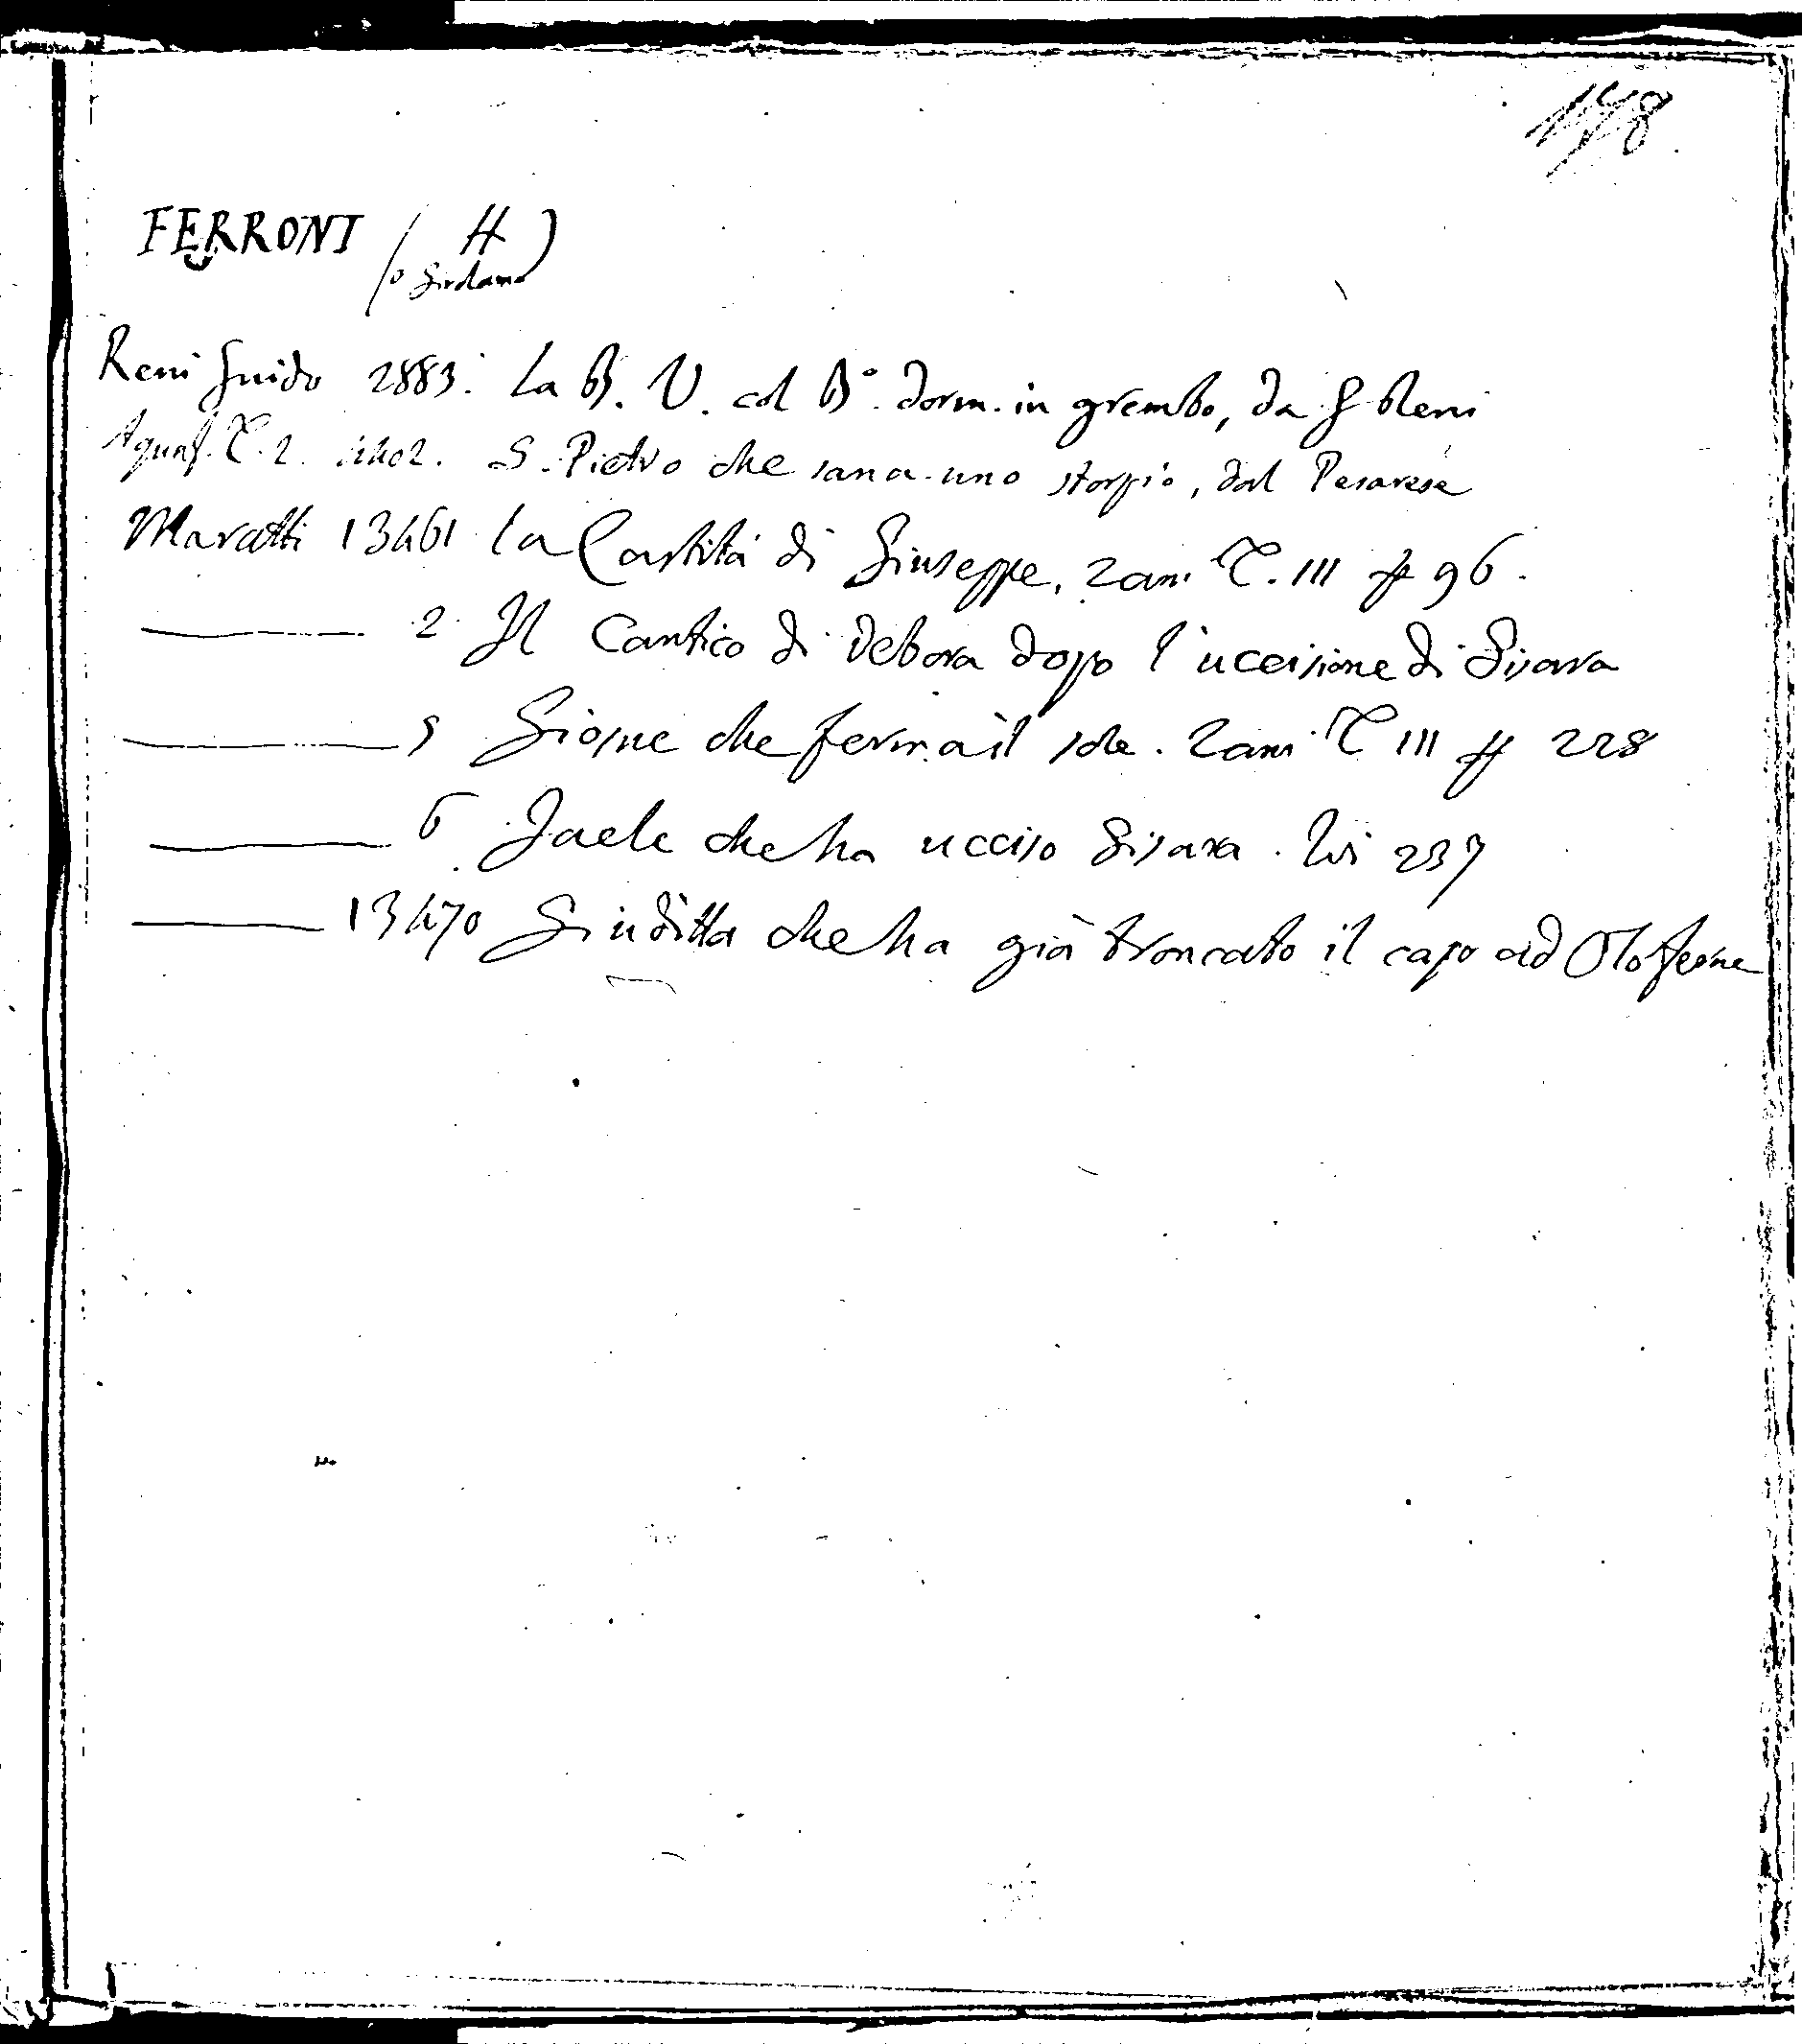 178
FERRONI ( H )
o Girolamo
Reni Guido 2883. La B. V. col B.° dorm. in grembo, da G Reni
Aquaf. T. 2. S. Pietro che sana uno storpio, dal Pesarese
Maratti 13461 la Castità di Giuseppe, Zani T. III 96.
2. Il Cantico di Debora dopo l'uccisione di Sisara
5 Giosue che ferma il sole. Zani T III 228
6 Jaele che ha ucciso Sisara. Ivi 237
13470 Giuditta che ha già troncato il capo ad Oloferne